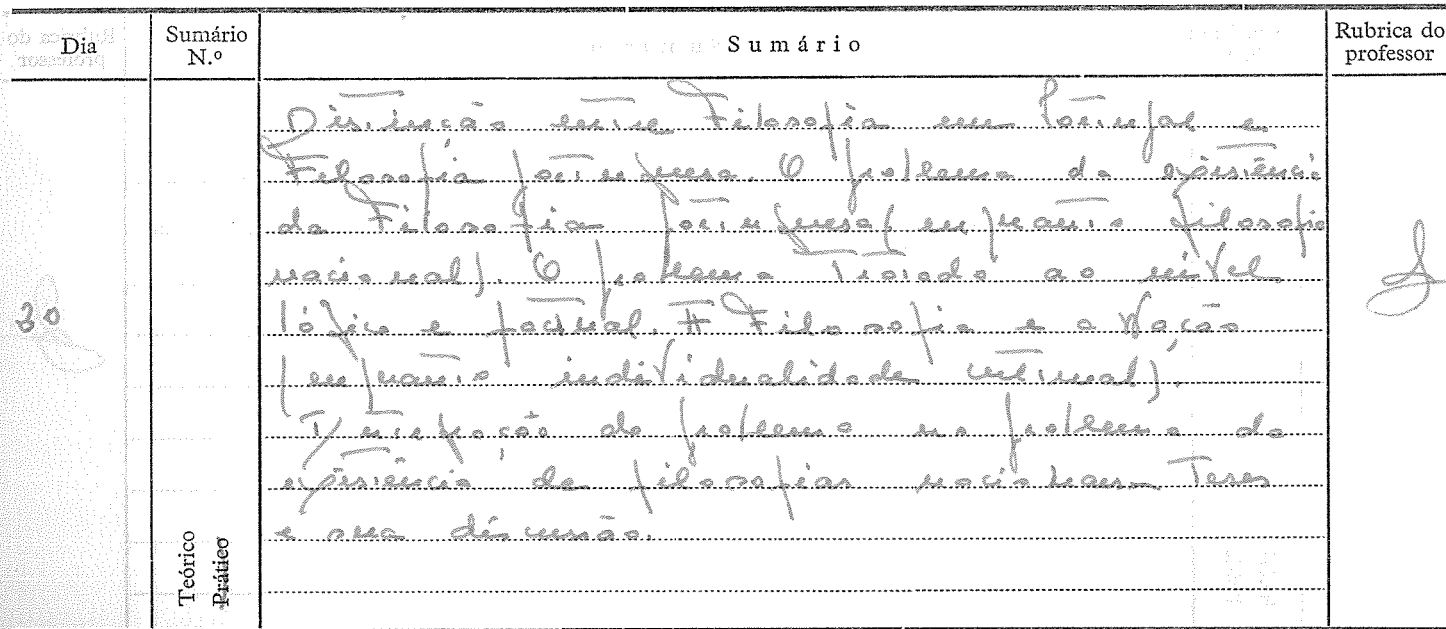 Dia
Sumário N.º
Sumário
Rubrica do professor
Distinção entre Filosofia em Portugal e
Filosofia portuguesa. O problema da existência
da Filosofia portuguesa (enquanto filosofia
nacional). O problema tratado ao nível
lógico e factual. A Filosofia e a Nação
(enquanto individualidade cultural).
30
Integração do problema no problema da
existência de filosofias nacionais. Teses
e sua discussão.
Teórico
Prático